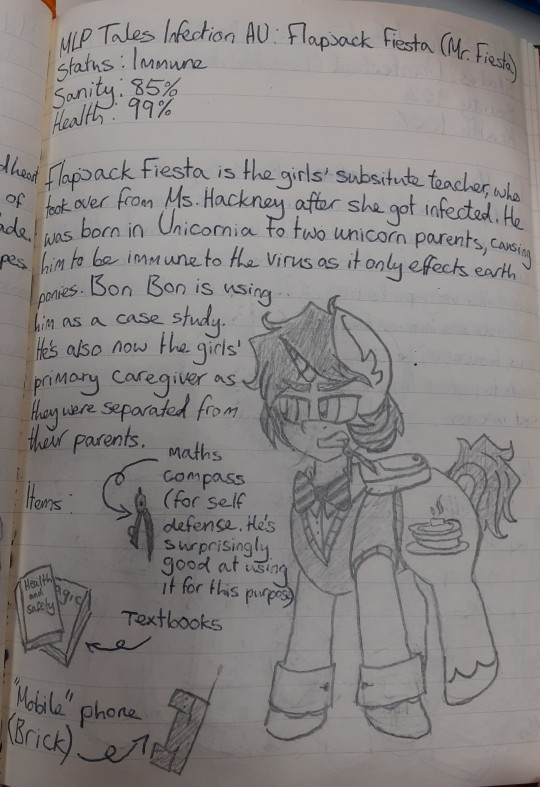 MLP Tales Infection AU: Flapjack Fiesta (Mr. Fiesta)
Status: Immune
Sanity: 85%
Health: 99%
Flapjack Fiesta is the girls' subsitute teacher, who
took over from Ms. Hackney after she got infected. He
was born in Unicornia to two unicorn parents, causing
him to be immune to the virus as it only effects earth
ponies. Bon Bon is using
him as a case study.
He's also now the girls'
primary caregiver as
they were separated from
their parents.
Items:
Maths
compass
(for self
defense. He's
surprisingly
good at using
it for this purpose)
Health
and
safety
Textbooks
"Mobile" phone
(Brick)
of